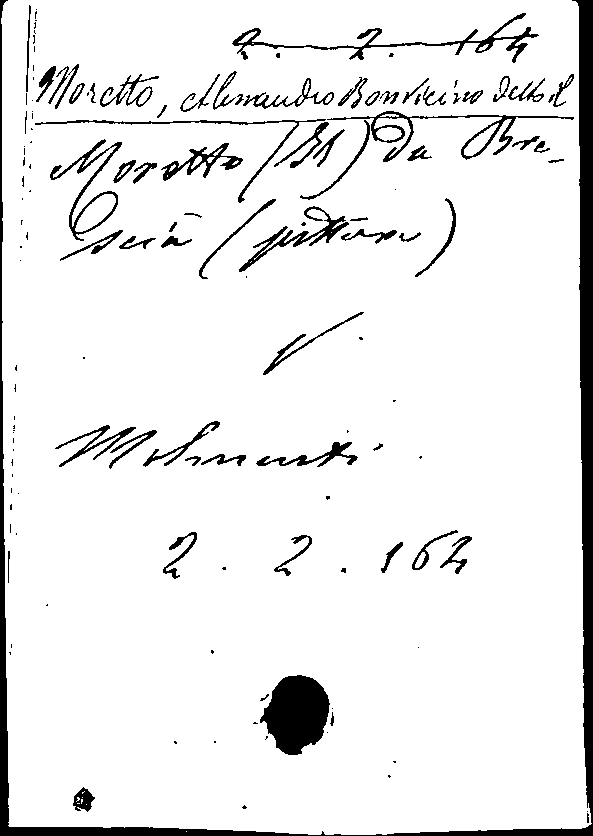 2. 2. 164
Moretto, Alessandro Bonvicino detto il
Moretto (Il) da Bre-
scia (pittore)
V.
Molmenti
2. 2. 164